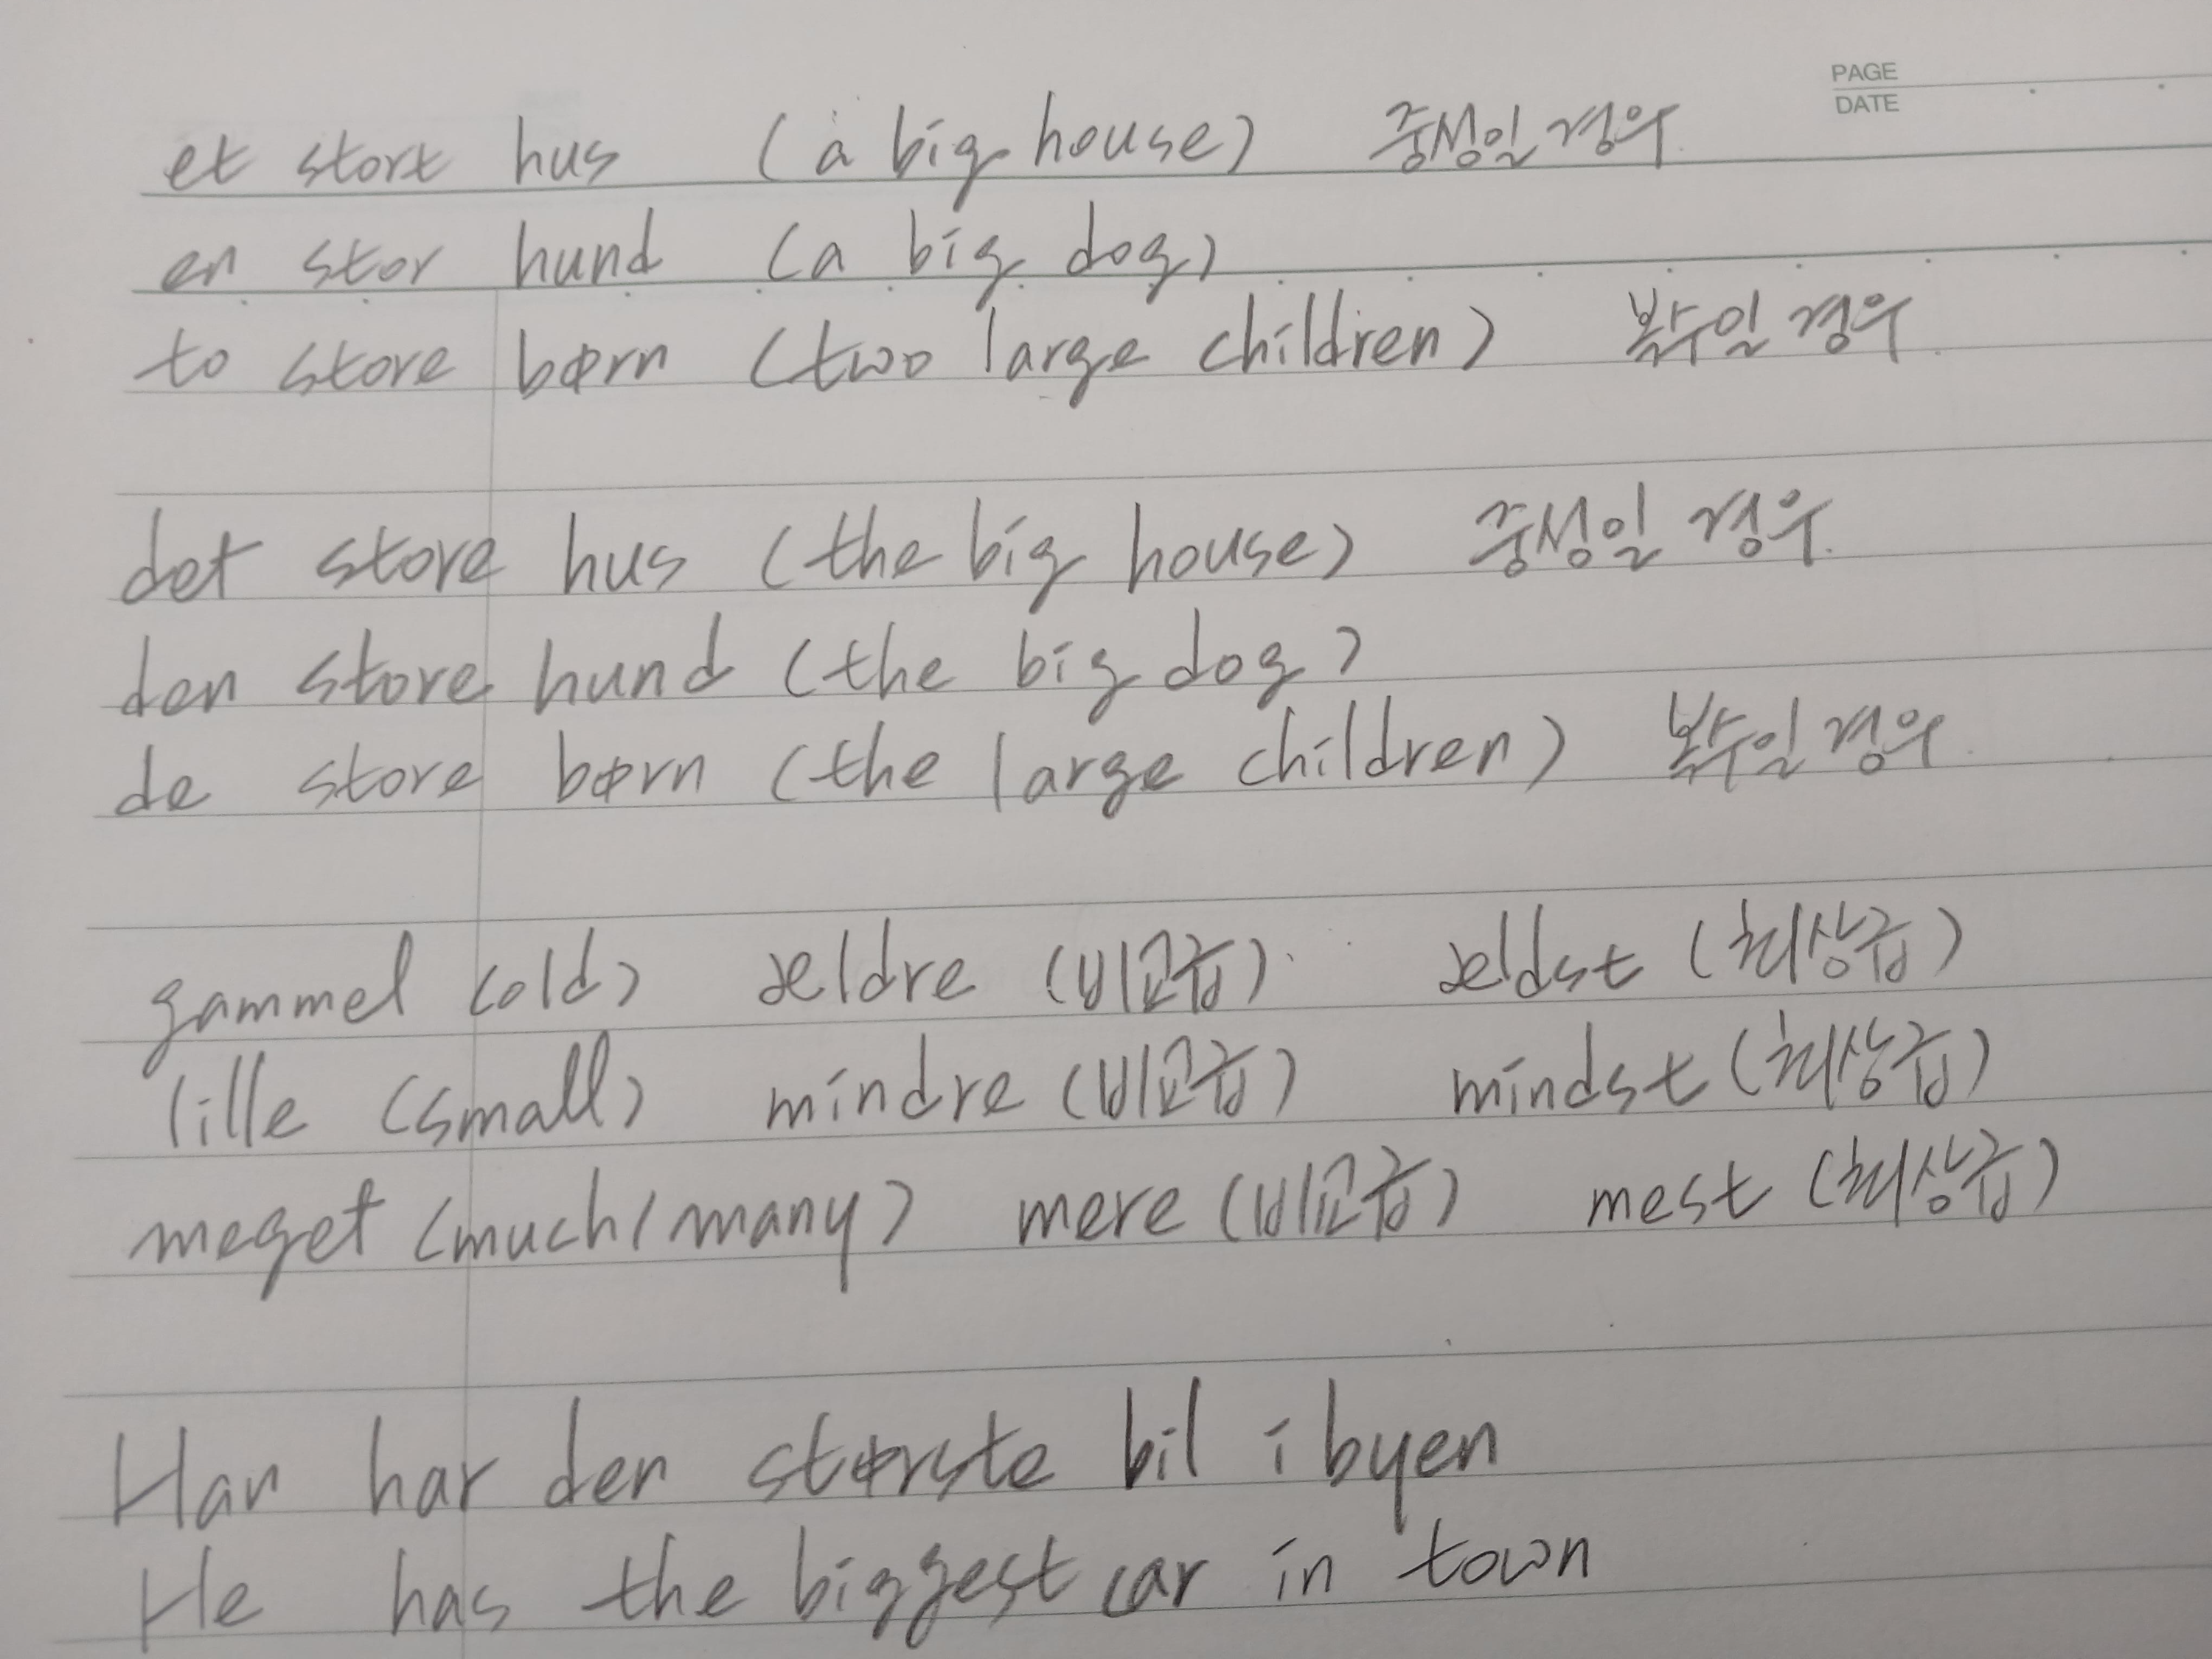 PAGE
DATE
et stort hus (a big house) 중성일 경우.
en stor hund (a big dog)
to store børn (two large children) 복수일 경우.
det store hus (the big house) 중성일 경우.
den store hund (the big dog)
de store børn (the large children) 복수일 경우.
gammel (old) ældre (비교급) ældst (최상급)
lille (small) mindre (비교급) mindst (최상급)
meget (much/many) mere (비교급) mest (최상급)
Han har den største bil i byen
He has the biggest car in town